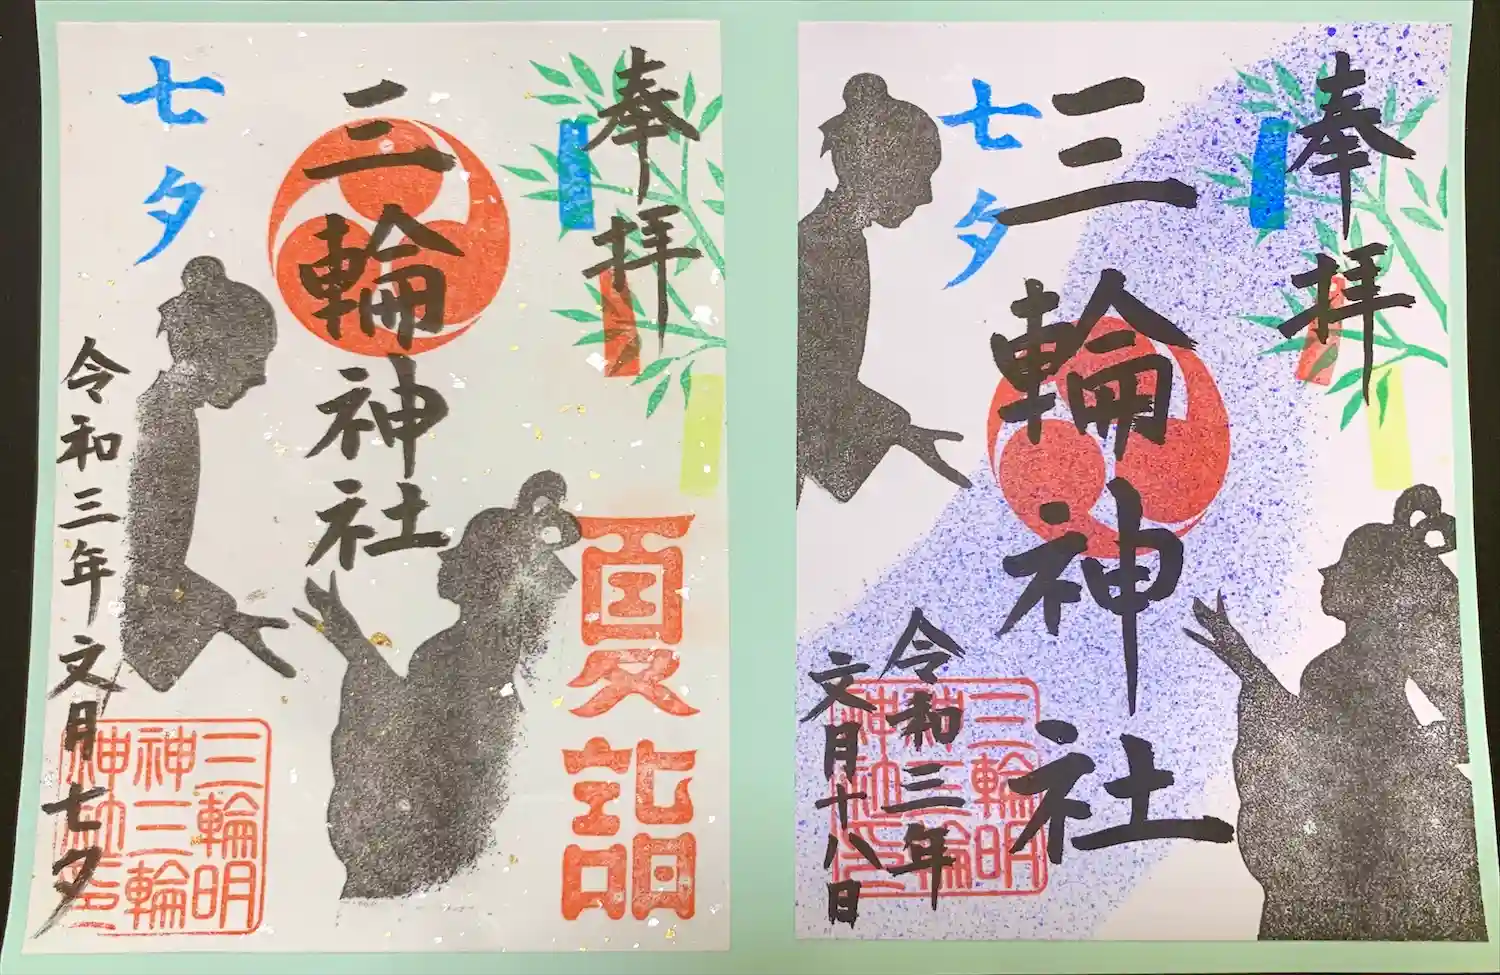 奉拝
夏詣
三輪神社
七夕
令和三年文月七夕
三輪明
神三輪
神社印
奉拝
三輪神社
七夕
令和三年
文月十八日
三輪明
神三輪
神社印